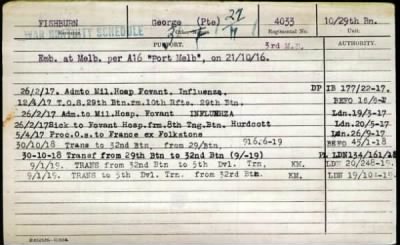 FISHBURN George (Pte) 4033 10/29th Bn.
WAR GRATUITY SCHEDULE Regimental No. Unit.
PURPORT. 3rd M.D.
Emb. at Melb. per A16 "Port Melb", on 21/10/16.
26/2/17. Admto Mil.Hosp Fovant, Influenza. DP IB 177/22-17.
12/4/17 T.O.S.29th Btn.frm.10th Rfts. 29th Btn. BEFO
26/2/17 Adm.to Mil.Hosp Fovant INFLUENZA Ldn.19/3-17
26/2/17Sick to Fovant Hosp.frm.8th Tng.Btn. Hurdcott Ldn.20/5-17
5/4/17 Proc.O.S. to France ex Folkstone Ldn.26/9-17
30/10/18 Trans to 32nd Btn. from 29/Btn. BEFO 45/1-18
30-10-18 Transf from 29th Btn to 32nd Btn (9/-19) LDN134/161/18
9/1/19. TRANS from 32nd Btn to 5th Dvl. Trn. KM. LDN 20/248-19.
9/1/19. TRANS to 5th Dvl. Trn. from 32nd Btn. KM. LDN 19/104-19.